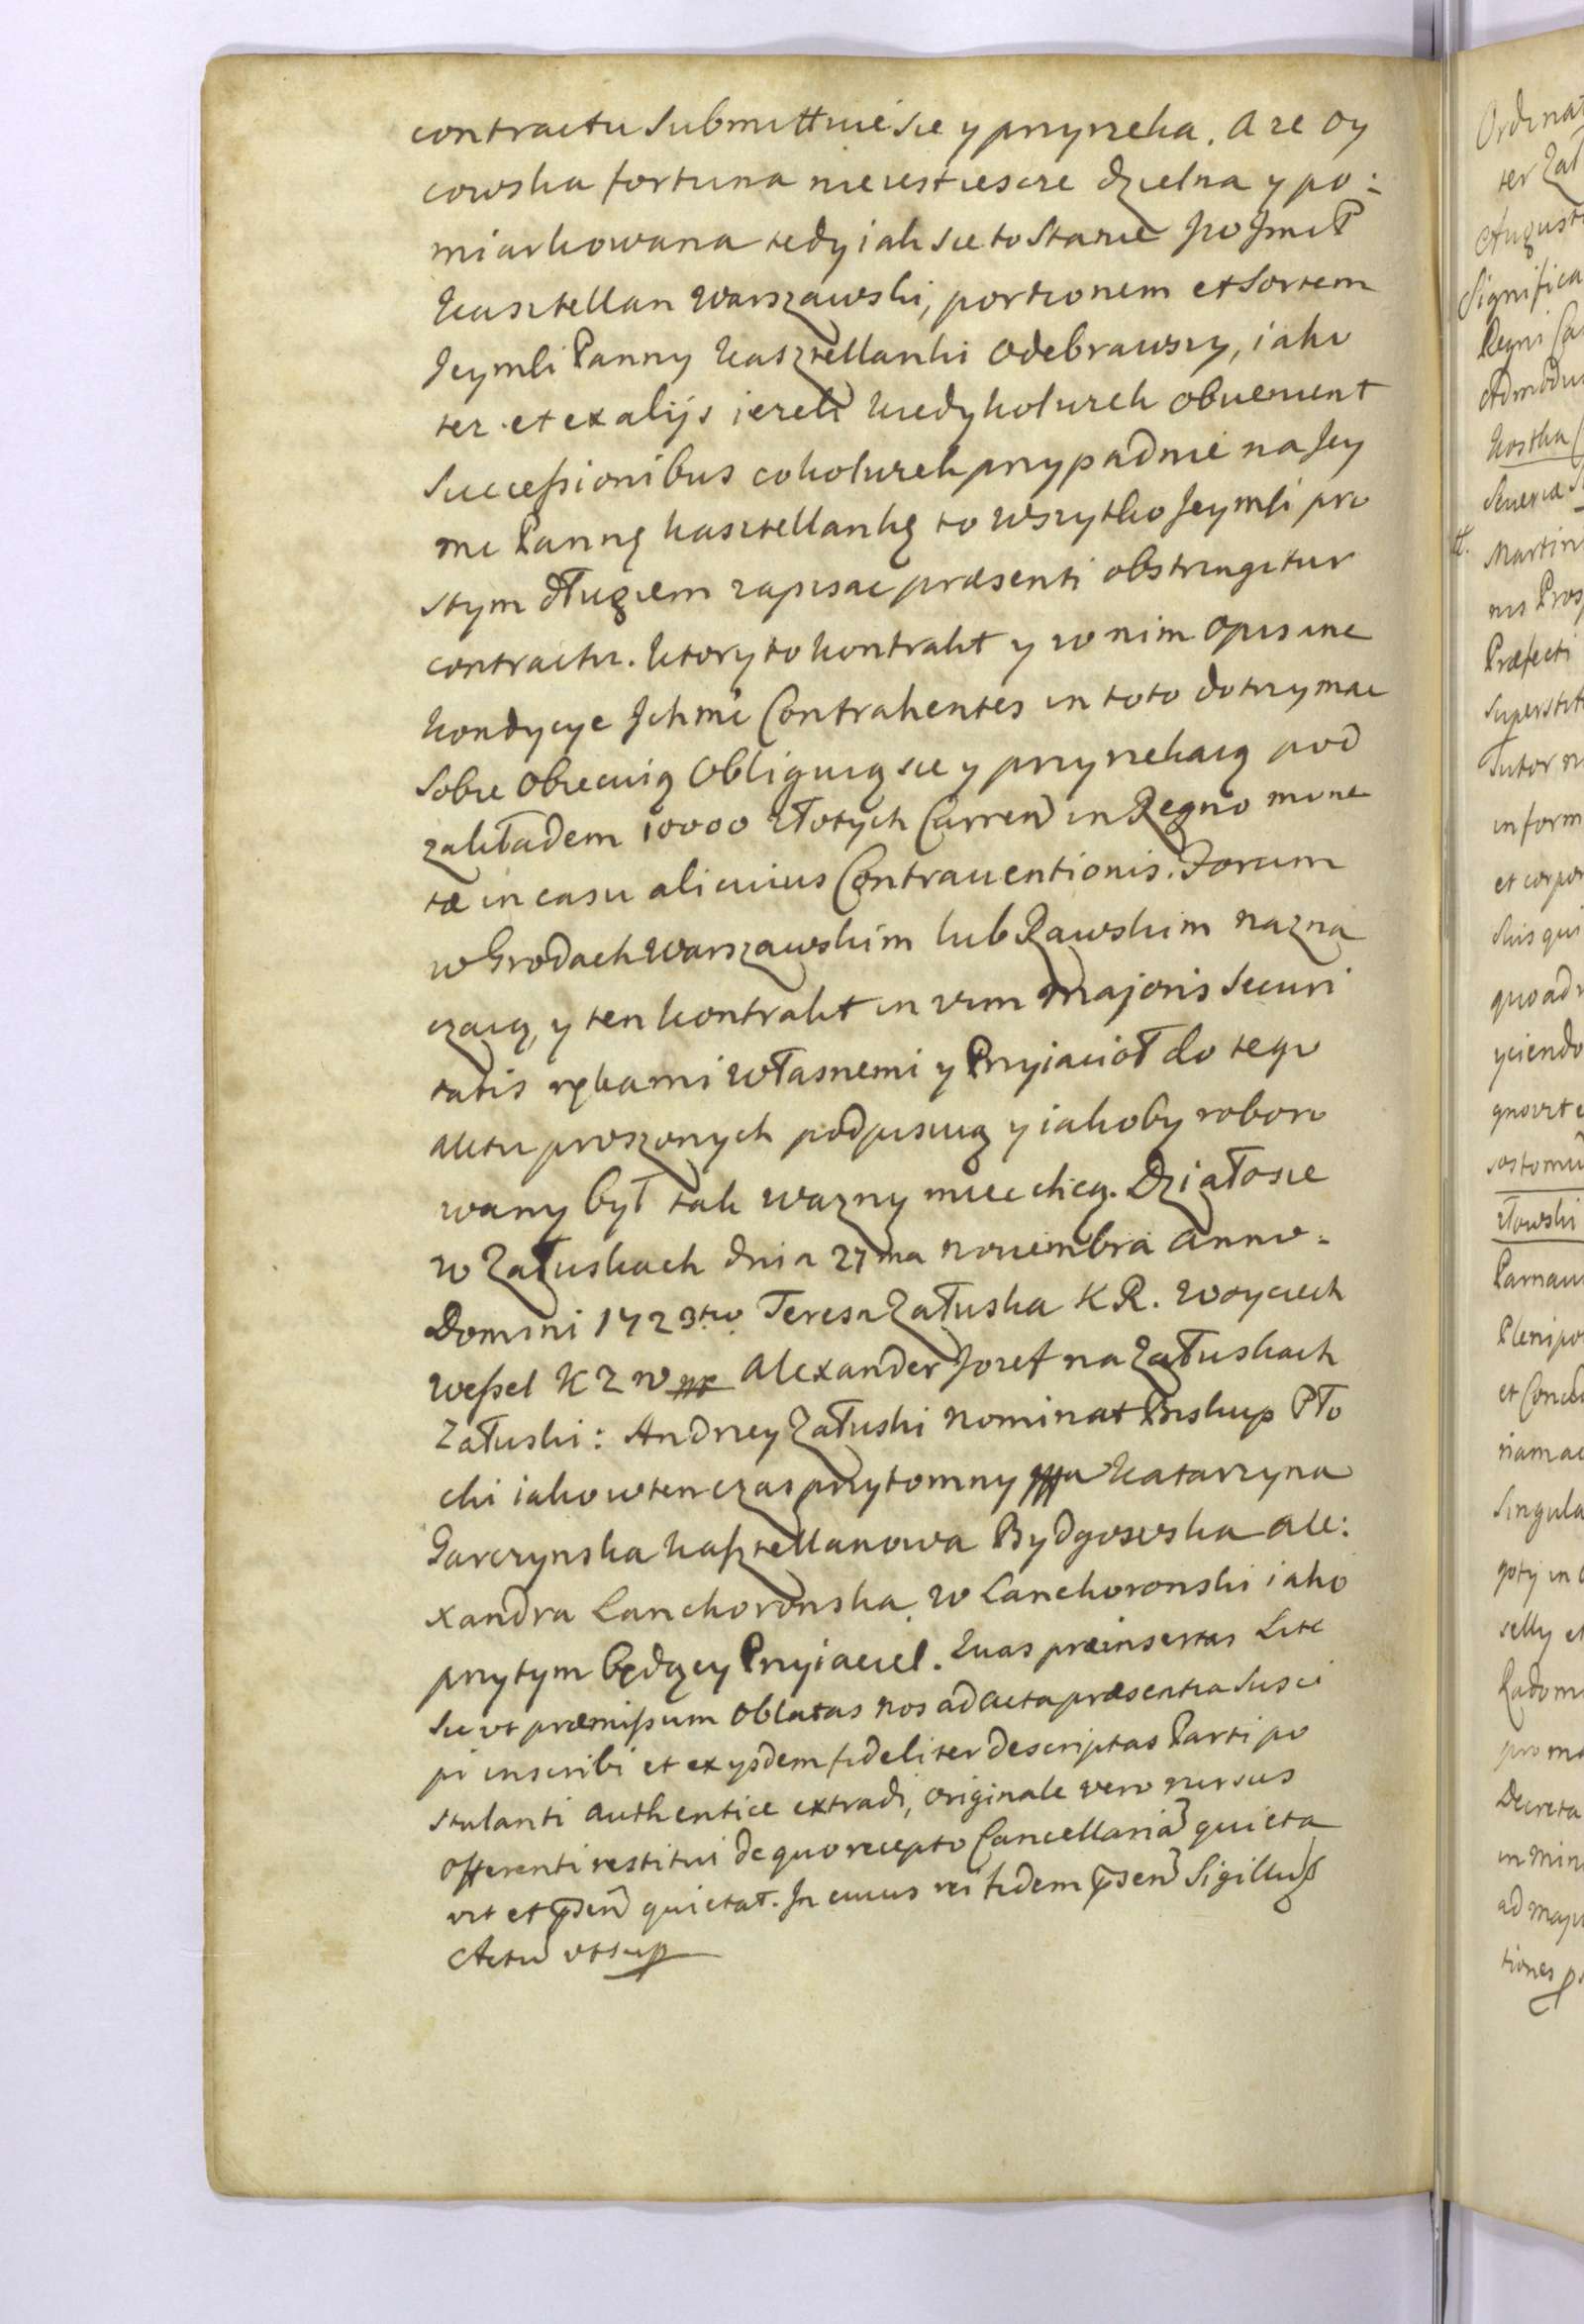 contractu submittuie sie y przyrzeka. A ze Oy
cowska fortuna nie iest iescze dzielna y po:
miarkowana tedy iak sie to stanie Jo Jmc P
Kasztellan Warszawski, portionem et sortem
Jeymści Panny Kasztellanki odebrawszy, iako
tez et ex alijs iezeli kiedykolwiek obuenient
Successionibus cokolwiek przypadnie na Jey
mc Pannę kasztellankę to wszytko Jeymści pro
stym długiem zapisac præsenti obstringitur
contractu. Ktory to kontrakt y w nim opisane
kondycye Ichmc Contrahentes in toto dotrzymac
sobie obiecuią obliguią sie y przyrzekaią pod
zakładem 10000 złotych Curren in Regno mone
tæ in casu alicuius Contrauentionis. Forum
w Grodach Warszawskim lub Rawskim nazna
czaią, y ten kontrakt in vim majoris securi
tatis rękami własnemi y Przyiacioł do tego
aktu proszonych podpisuią y iakoby roboro
wany był tak wazny miec chcą. Działo sie
w Załuskach dnia 27ma Nouembra Anno.
Domini 1723tio. Teresa Załuska K R. Woyciech
Wessel K Z W Alexander Jozef na Załuskach
Załuski: Andrzey Załuski Nominat Biskup Pło
cki iako wten czas przytomny mppa Katarzyna
Garczynska Kasztellanowa Bydgowska Ale:
xandra Lanckoronska W Lanckoronski iako
przytym będący Przyiaciel. Quas præinsertas Lite
sic vt præmissum oblatas nos ad Acta præsentia susci
pi inscribi et ex ysdem fideliter descriptas Parti po
stulanti authentice extradi, originale vero rursus
offerenti restitui de quo recepto Cancellaria quieta
vit et psen quietat. In cuius rei fidem psen Sigillu
Actu vt sup